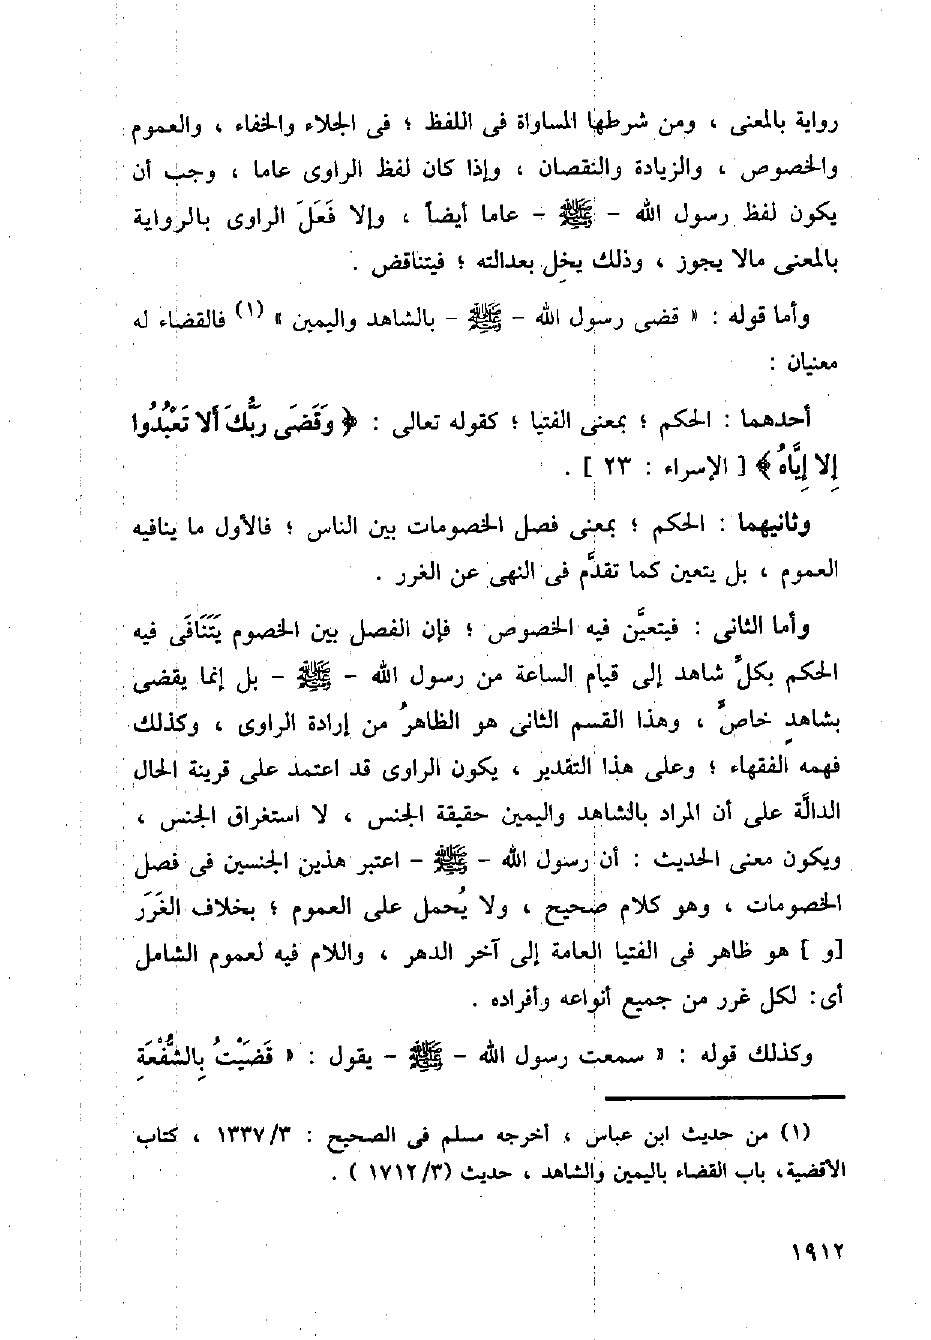 رواية بالمعنى ، ومن شرطها المساواة فى اللفظ ؛ فى الجلاء والخفاء ، والعموم
والخصوص ، والزيادة والنقصان ، وإذا كان لفظ الراوى عاما ، وجب أن
يكون لفظ رسول الله - ﷺ - عاما أيضاً ، وإلا فَعَلَ الراوى بالرواية
بالمعنى مالا يجوز ، وذلك يخل بعدالته ؛ فيتناقض .
وأما قوله : « قضى رسول الله - ﷺ - بالشاهد واليمين » (١) فالقضاء له
معنيان :
أحدهما : الحكم ؛ بمعنى الفتيا ؛ كقوله تعالى : ﴿ وَقَضَى رَبُّكَ أَلا تَعْبُدُوا
إِلا إِيَّاهُ ﴾ [ الإسراء : ٢٣ ] .
وثانيهما : الحكم ؛ بمعنى فصل الخصومات بين الناس ؛ فالأول ما ينافيه
العموم ، بل يتعين كما تقدَّم فى النهى عن الغرر .
وأما الثانى : فيتعيَّن فيه الخصوص ؛ فإن الفصل بين الخصوم يَتَنَافَى فيه
الحكم بكلِّ شاهد إلى قيام الساعة من رسول الله - ﷺ - بل إنما يقضى
بشاهدٍ خاصٍّ ، وهذا القسم الثانى هو الظاهرُ من إرادة الراوى ، وكذلك
فهمه الفقهاء ؛ وعلى هذا التقدير ، يكون الراوى قد اعتمد على قرينة الحال
الدالَّة على أن المراد بالشاهد واليمين حقيقة الجنس ، لا استغراق الجنس ،
ويكون معنى الحديث : أن رسول الله - ﷺ - اعتبر هذين الجنسين فى فصل
الخصومات ، وهو كلام صحيح ، ولا يُحمل على العموم ؛ بخلاف الغَرَر
[و ] هو ظاهر فى الفتيا العامة إلى آخر الدهر ، واللام فيه لعموم الشامل
أى: لكل غرر من جميع أنواعه وأفراده .
وكذلك قوله : « سمعت رسول الله - ﷺ - يقول : « قَضَيْتُ بِالشُّفْعَةِ
(١) من حديث ابن عباس ، أخرجه مسلم فى الصحيح : ١٣٣٧/٣ ، كتاب
الأقضية، باب القضاء باليمين والشاهد ، حديث (١٧١٢/٣ ) .
١٩١٢